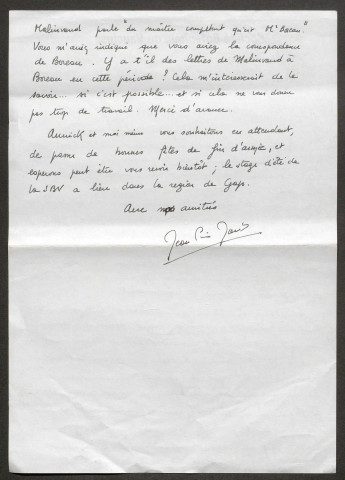 Malinvaud parle "du maître compétent qu'est Mr Boreau."
Vous m'aviez indiqué que vous aviez la correspondance
de Boreau. Y a t'il des lettres de Malinvaud à
Boreau en cette période ? Cela m'intéresserait de le
savoir... si c'est possible... et si cela ne vous donne
pas trop de travail. Merci d'avance.
Annick et moi même vous souhaitons en attendant,
de passer de bonnes fêtes de fin d'année, et
espérons peut être vous revoir bientôt ; le stage d'été de
la SBV a lieu dans la région de Gap.
Avec nos amitiés
Jean